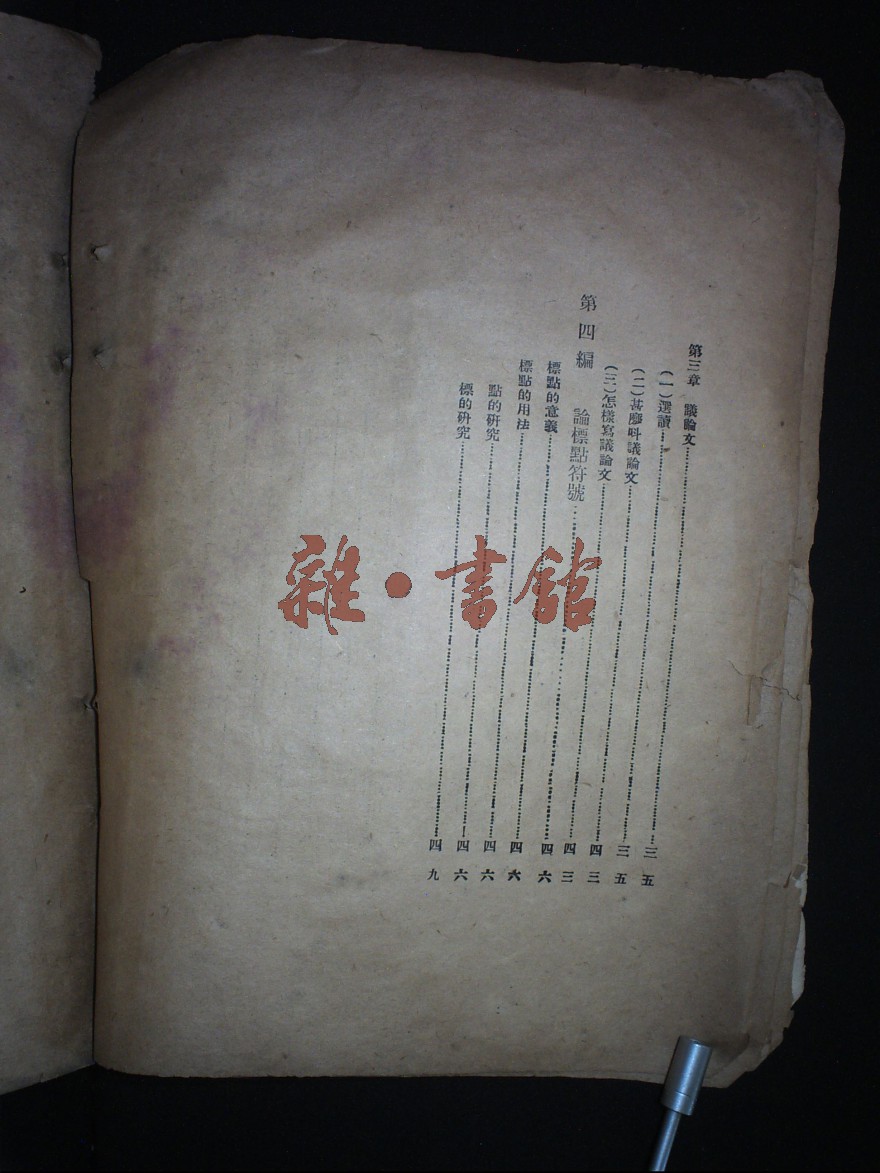 第三章　議論文……三五
（一）選讀……三五
（二）甚麼叫議論文……四三
（三）怎樣寫議論文……四三
第四編　論標點符號……四六
標點的意義……四六
標點的用法……四六
點的研究……四六
標的研究……四九
雜·書館